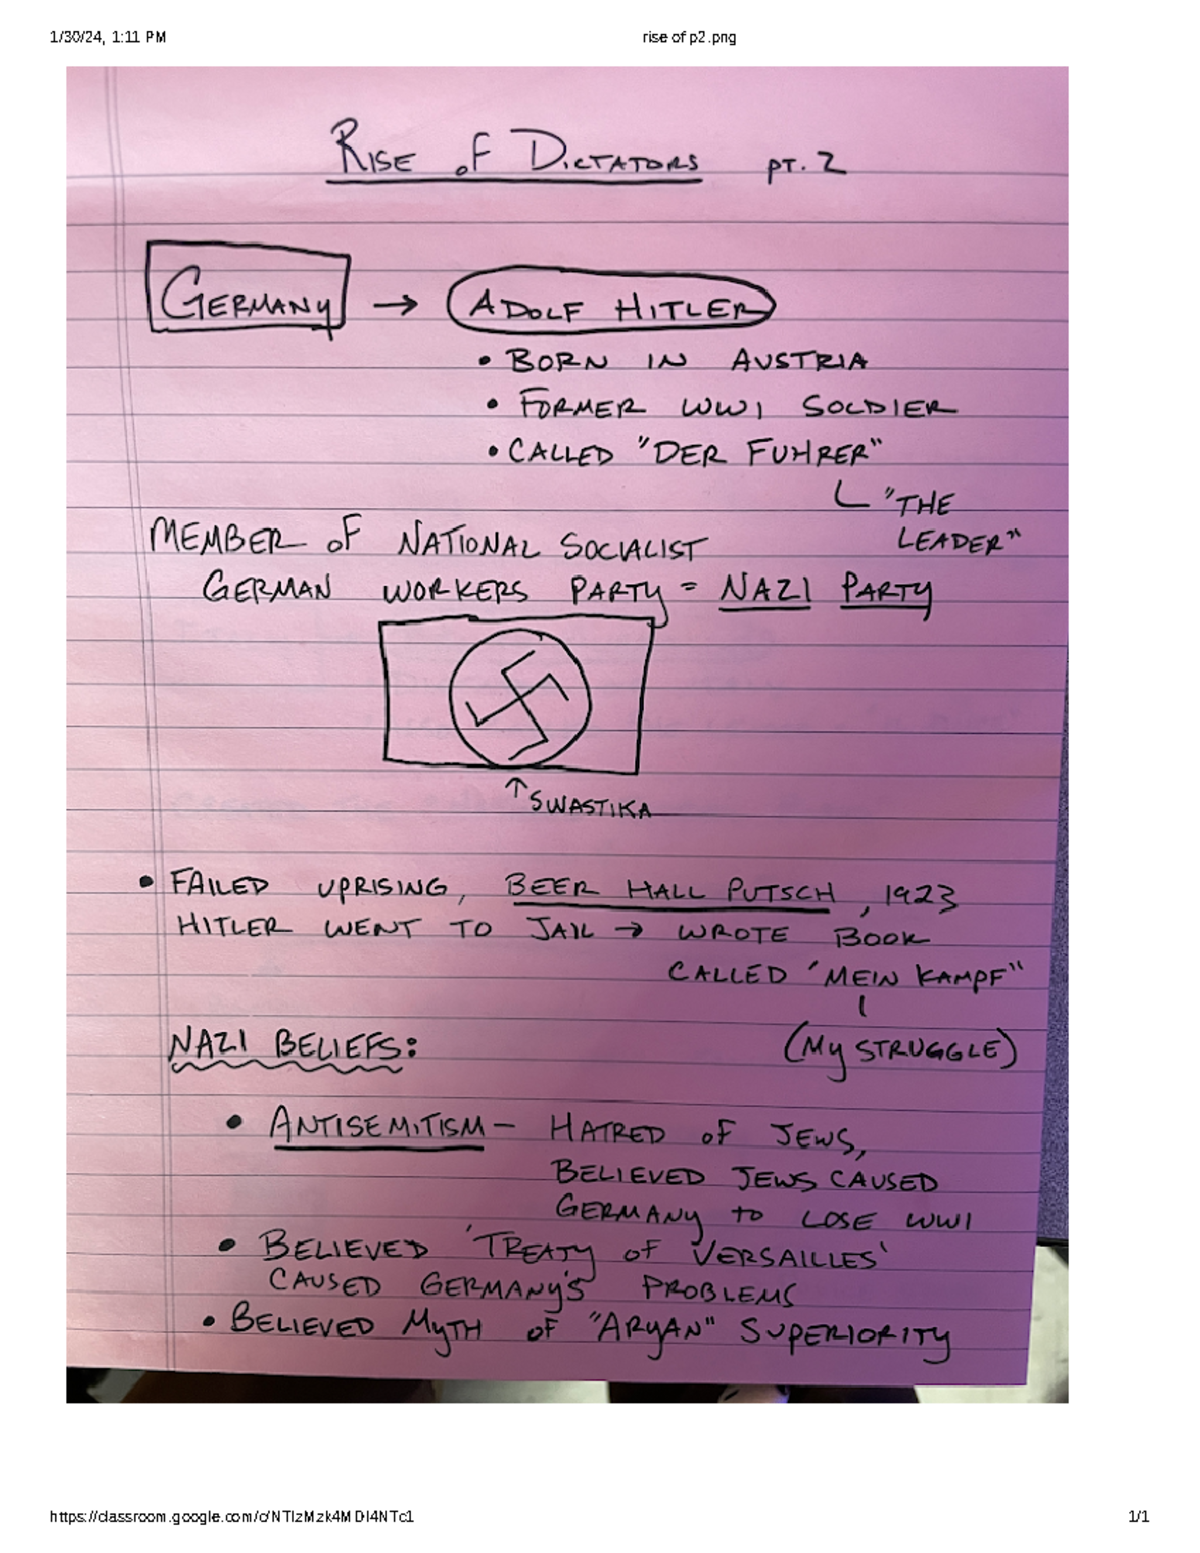 1/30/24, 1:11 PM rise of p2.png
RISE OF DICTATORS PT. 2
GERMANY → ADOLF HITLER
• BORN IN AUSTRIA
• FORMER WW1 SOLDIER
• CALLED "DER FUHRER"
"THE
LEADER"
MEMBER OF NATIONAL SOCIALIST
GERMAN WORKERS PARTY = NAZI PARTY
↑ SWASTIKA
• FAILED UPRISING, BEER HALL PUTSCH, 1923
HITLER WENT TO JAIL → WROTE BOOK
CALLED "MEIN KAMPF"
(MY STRUGGLE)
NAZI BELIEFS:
• ANTISEMITISM - HATRED OF JEWS,
BELIEVED JEWS CAUSED
GERMANY TO LOSE WW1
• BELIEVED 'TREATY OF VERSAILLES'
CAUSED GERMANY'S PROBLEMS
• BELIEVED MYTH OF "ARYAN" SUPERIORITY
https://classroom.google.com/c/NTIzMzk4MDI4NTc1 1/1